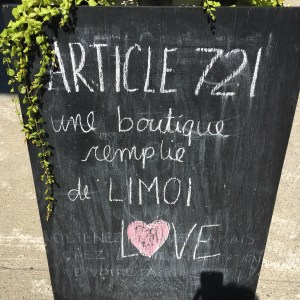 ARTICLE 721
une boutique
remplie
de LIMOI
L❤VE